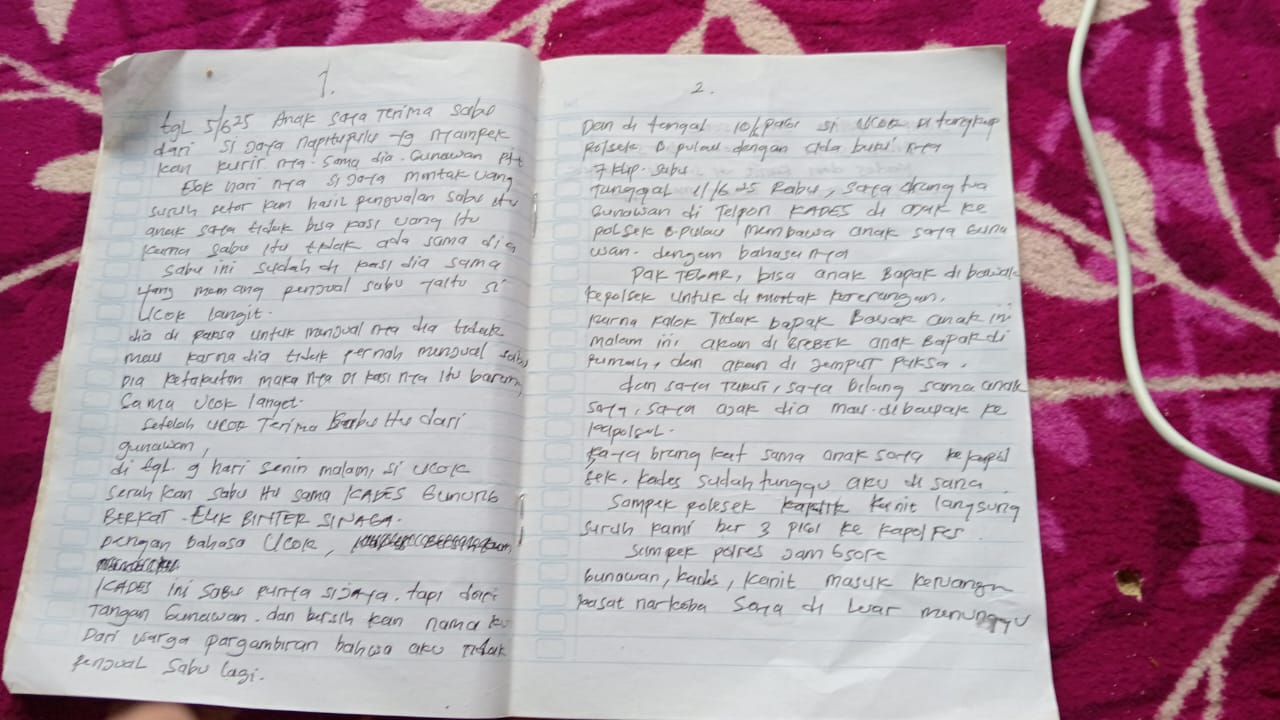 1.
tgl 5/6 25 Anak saya Terima sabu
dari si Jaya napitupulu yg nyampek
kan kurir nya sama dia. Gunawan
Esok hari nya si Jaya mintak uang
suruh setor kan hasil penjualan sabu itu
anak saya tidak bisa kasi uang itu
karna sabu itu tidak ada sama dia
sabu ini sudah di kasi dia sama
yang memang penjual sabu yaitu si
Ucok langit.
dia di paksa untuk menjual nya dia tidak
mau karna dia tidak pernah menjual sabu
Dia ketakutan maka nya Di kasi nya itu barang
Sama Ucok langet.
setelah Ucok Terima sabu itu dari
gunawan,
di tgl 9 hari senin malam, si Ucok
serah kan sabu itu sama KADES GUNUNG
BERKAT. ELIK BINTER SINAGA.
Dengan bahasa Ucok,
KADES ini Sabu punya si Jaya. tapi dari
Tangan Gunawan. dan bersih kan nama ku
Dari warga pargambiran bahwa aku Tidak
penjual Sabu lagi.
2.
Dan di tanggal 10/6 pagi si Ucok di tangkap
Polsek B. pulau dengan ada bukti nya
7 klip. sabu
Tanggal 11/6 25 Rabu, saya orang tua
Gunawan di Telpon KADES di ajak ke
polsek B.pulau membawa anak saya Guna
wan. dengan bahasa nya
PAK TEGAR, bisa anak Bapak di bawak
kepolsek untuk di mintak keterangan.
karna kalok Tidak bapak Bawak anak ini
malam ini akan di GREBEK anak Bapak di
rumah, dan akan di jemput Paksa.
dan saya Takut, saya Bilang sama anak
saya, saya ajak dia mau. di bawak ke
kapolsek.
saya brang kat sama anak saya ke kapol
sek, kades sudah tunggu aku di sana
Sampek polesek Kanit langsung
suruh kami ber 3 pigi ke kapolres
Sampek polres Jam 6 sore
Gunawan, kades, kanit masuk keruangn
kasat narkoba Saya di luar menunggu